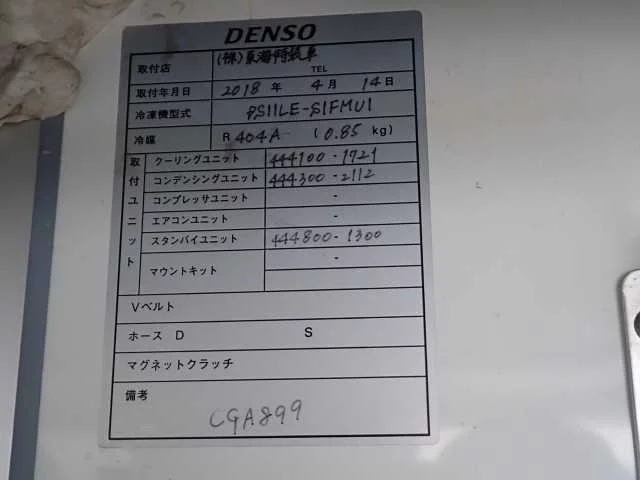 DENSO
取付店 (株)東海特装車
TEL
取付年月日 2018 年 4 月 14 日
冷凍機型式 PS11LE-S1FMU1
冷媒 R 404A (0.85 kg)
取付ユニット
クーリングユニット 444100-1721
コンデンシングユニット 444300-2112
コンプレッサユニット -
エアコンユニット -
スタンバイユニット 444800-1300
マウントキット -
Vベルト
ホース D S
マグネットクラッチ
備考
CGA899